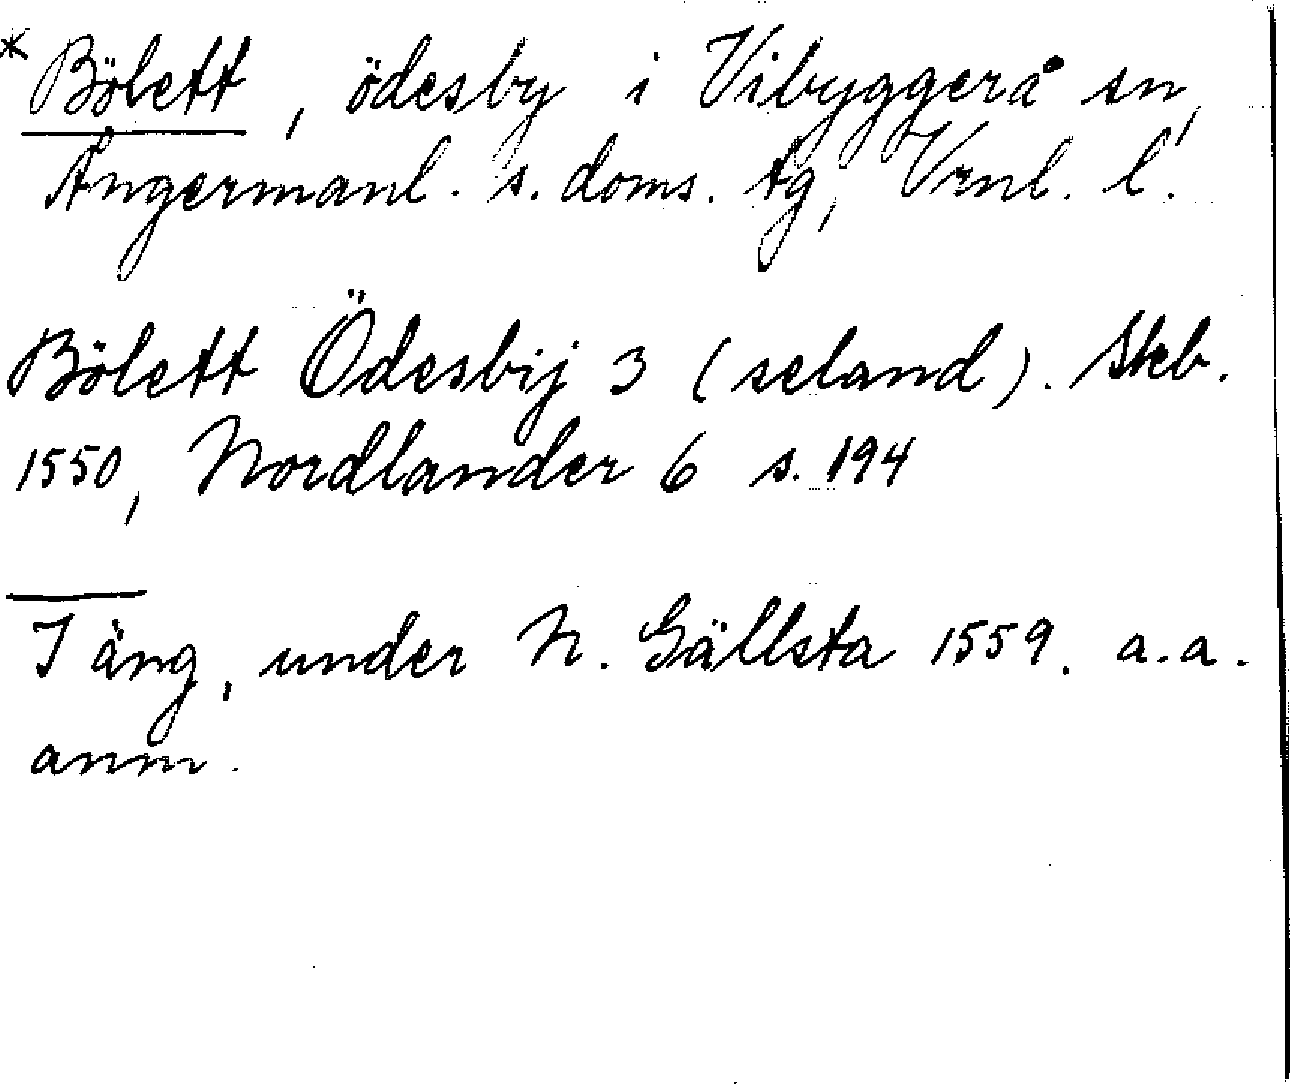 * Bölett, ödesby i Vibyggerå sn,
Ångermanl. s. doms. tg, Vrnl. l.
Bölett Ödesbij 3 (seland). Skb.
1550, Nordlander 6 s. 194
I äng, under N. Gällsta 1559. a.a.
anm.